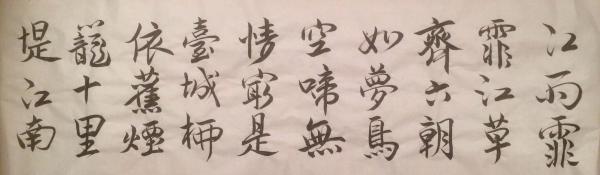 江雨霏
霏江草
齊六朝
如夢鳥
空啼無
情最是
臺城柳
依舊煙
籠十里
堤江南